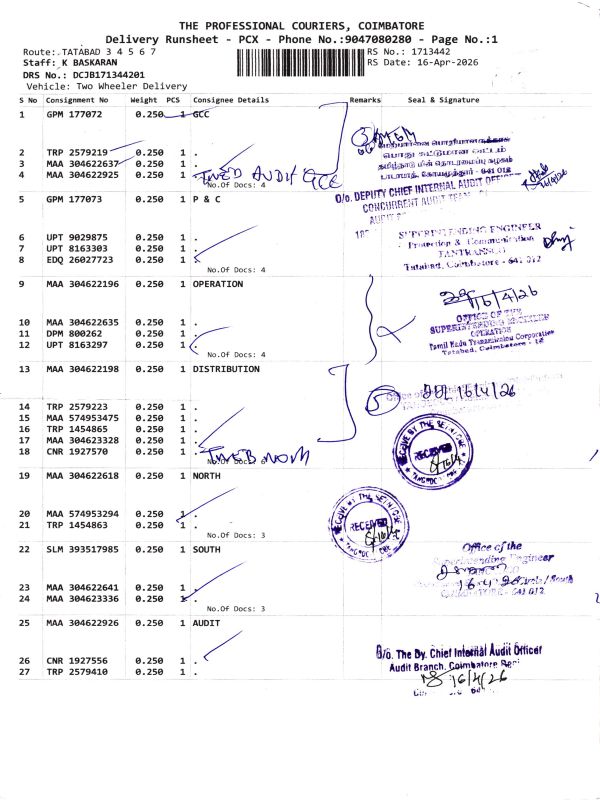 THE PROFESSIONAL COURIERS, COIMBATORE
Delivery Runsheet - PCX - Phone No.:9047080280 - Page No.:1
Route: TATABAD 3 4 5 6 7
RS No.: 1713442
Staff: K BASKARAN
RS Date: 16-Apr-2026
DRS No.: DCJB171344201
Vehicle: Two Wheeler Delivery
S No Consignment No Weight PCS Consignee Details Remarks Seal & Signature
1 GPM 177072 0.250 1 GCC
2 TRP 2579219 0.250 1 .
3 MAA 304622637 0.250 1 .
4 MAA 304622925 0.250 1 .
No.Of Docs: 4
TNEB AUDIT GCC
பொது கட்டுமான வட்டம்
O/o. DEPUTY CHIEF INTERNAL AUDIT OFFICER
CONCURRENT AUDIT TEAM
16/4/26
5 GPM 177073 0.250 1 P & C
6 UPT 9029875 0.250 1 .
7 UPT 8163303 0.250 1 .
8 EDQ 26027723 0.250 1 .
No.Of Docs: 4
SUPERINTENDING ENGINEER
Protection & Communication
TANTRANSCO
Tatabad, Coimbatore - 641 012
9 MAA 304622196 0.250 1 OPERATION
10 MAA 304622635 0.250 1 .
11 DPM 800262 0.250 1 .
12 UPT 8163297 0.250 1 .
No.Of Docs: 4
16/4/26
OFFICE OF THE
SUPERINTENDING ENGINEER
OPERATION
Tamil Nadu Transmission Corporation
Tatabad, Coimbatore - 12
13 MAA 304622198 0.250 1 DISTRIBUTION
14 TRP 2579223 0.250 1 .
15 MAA 574953475 0.250 1 .
16 TRP 1454865 0.250 1 .
17 MAA 304623328 0.250 1 .
18 CNR 1927570 0.250 1 .
TNEB North
5
16/4/26
RECEIVED
19 MAA 304622618 0.250 1 NORTH
20 MAA 574953294 0.250 1 .
21 TRP 1454863 0.250 1 .
No.Of Docs: 3
RECEIVED
22 SLM 393517985 0.250 1 SOUTH
23 MAA 304622641 0.250 1 .
24 MAA 304623336 0.250 1 .
No.Of Docs: 3
Office of the
Superintending Engineer
South
25 MAA 304622926 0.250 1 AUDIT
26 CNR 1927556 0.250 1 .
27 TRP 2579410 0.250 1 .
O/o. The Dy. Chief Internal Audit Officer
Audit Branch, Coimbatore
16/4/26